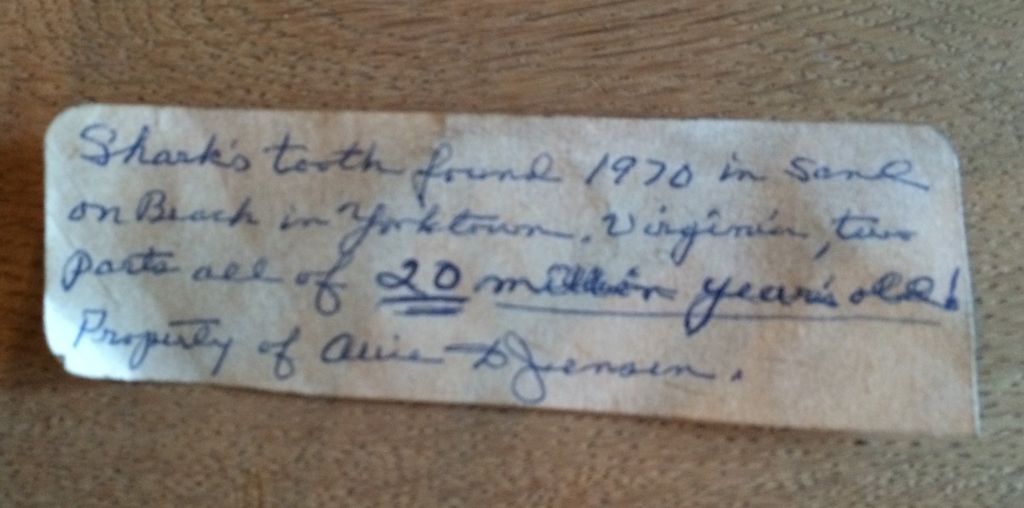 Shark's tooth found 1970 in Sand
on Beach in Yorktown. Virginia, two
parts all of 20 million year's old!
Property of D Jensen.